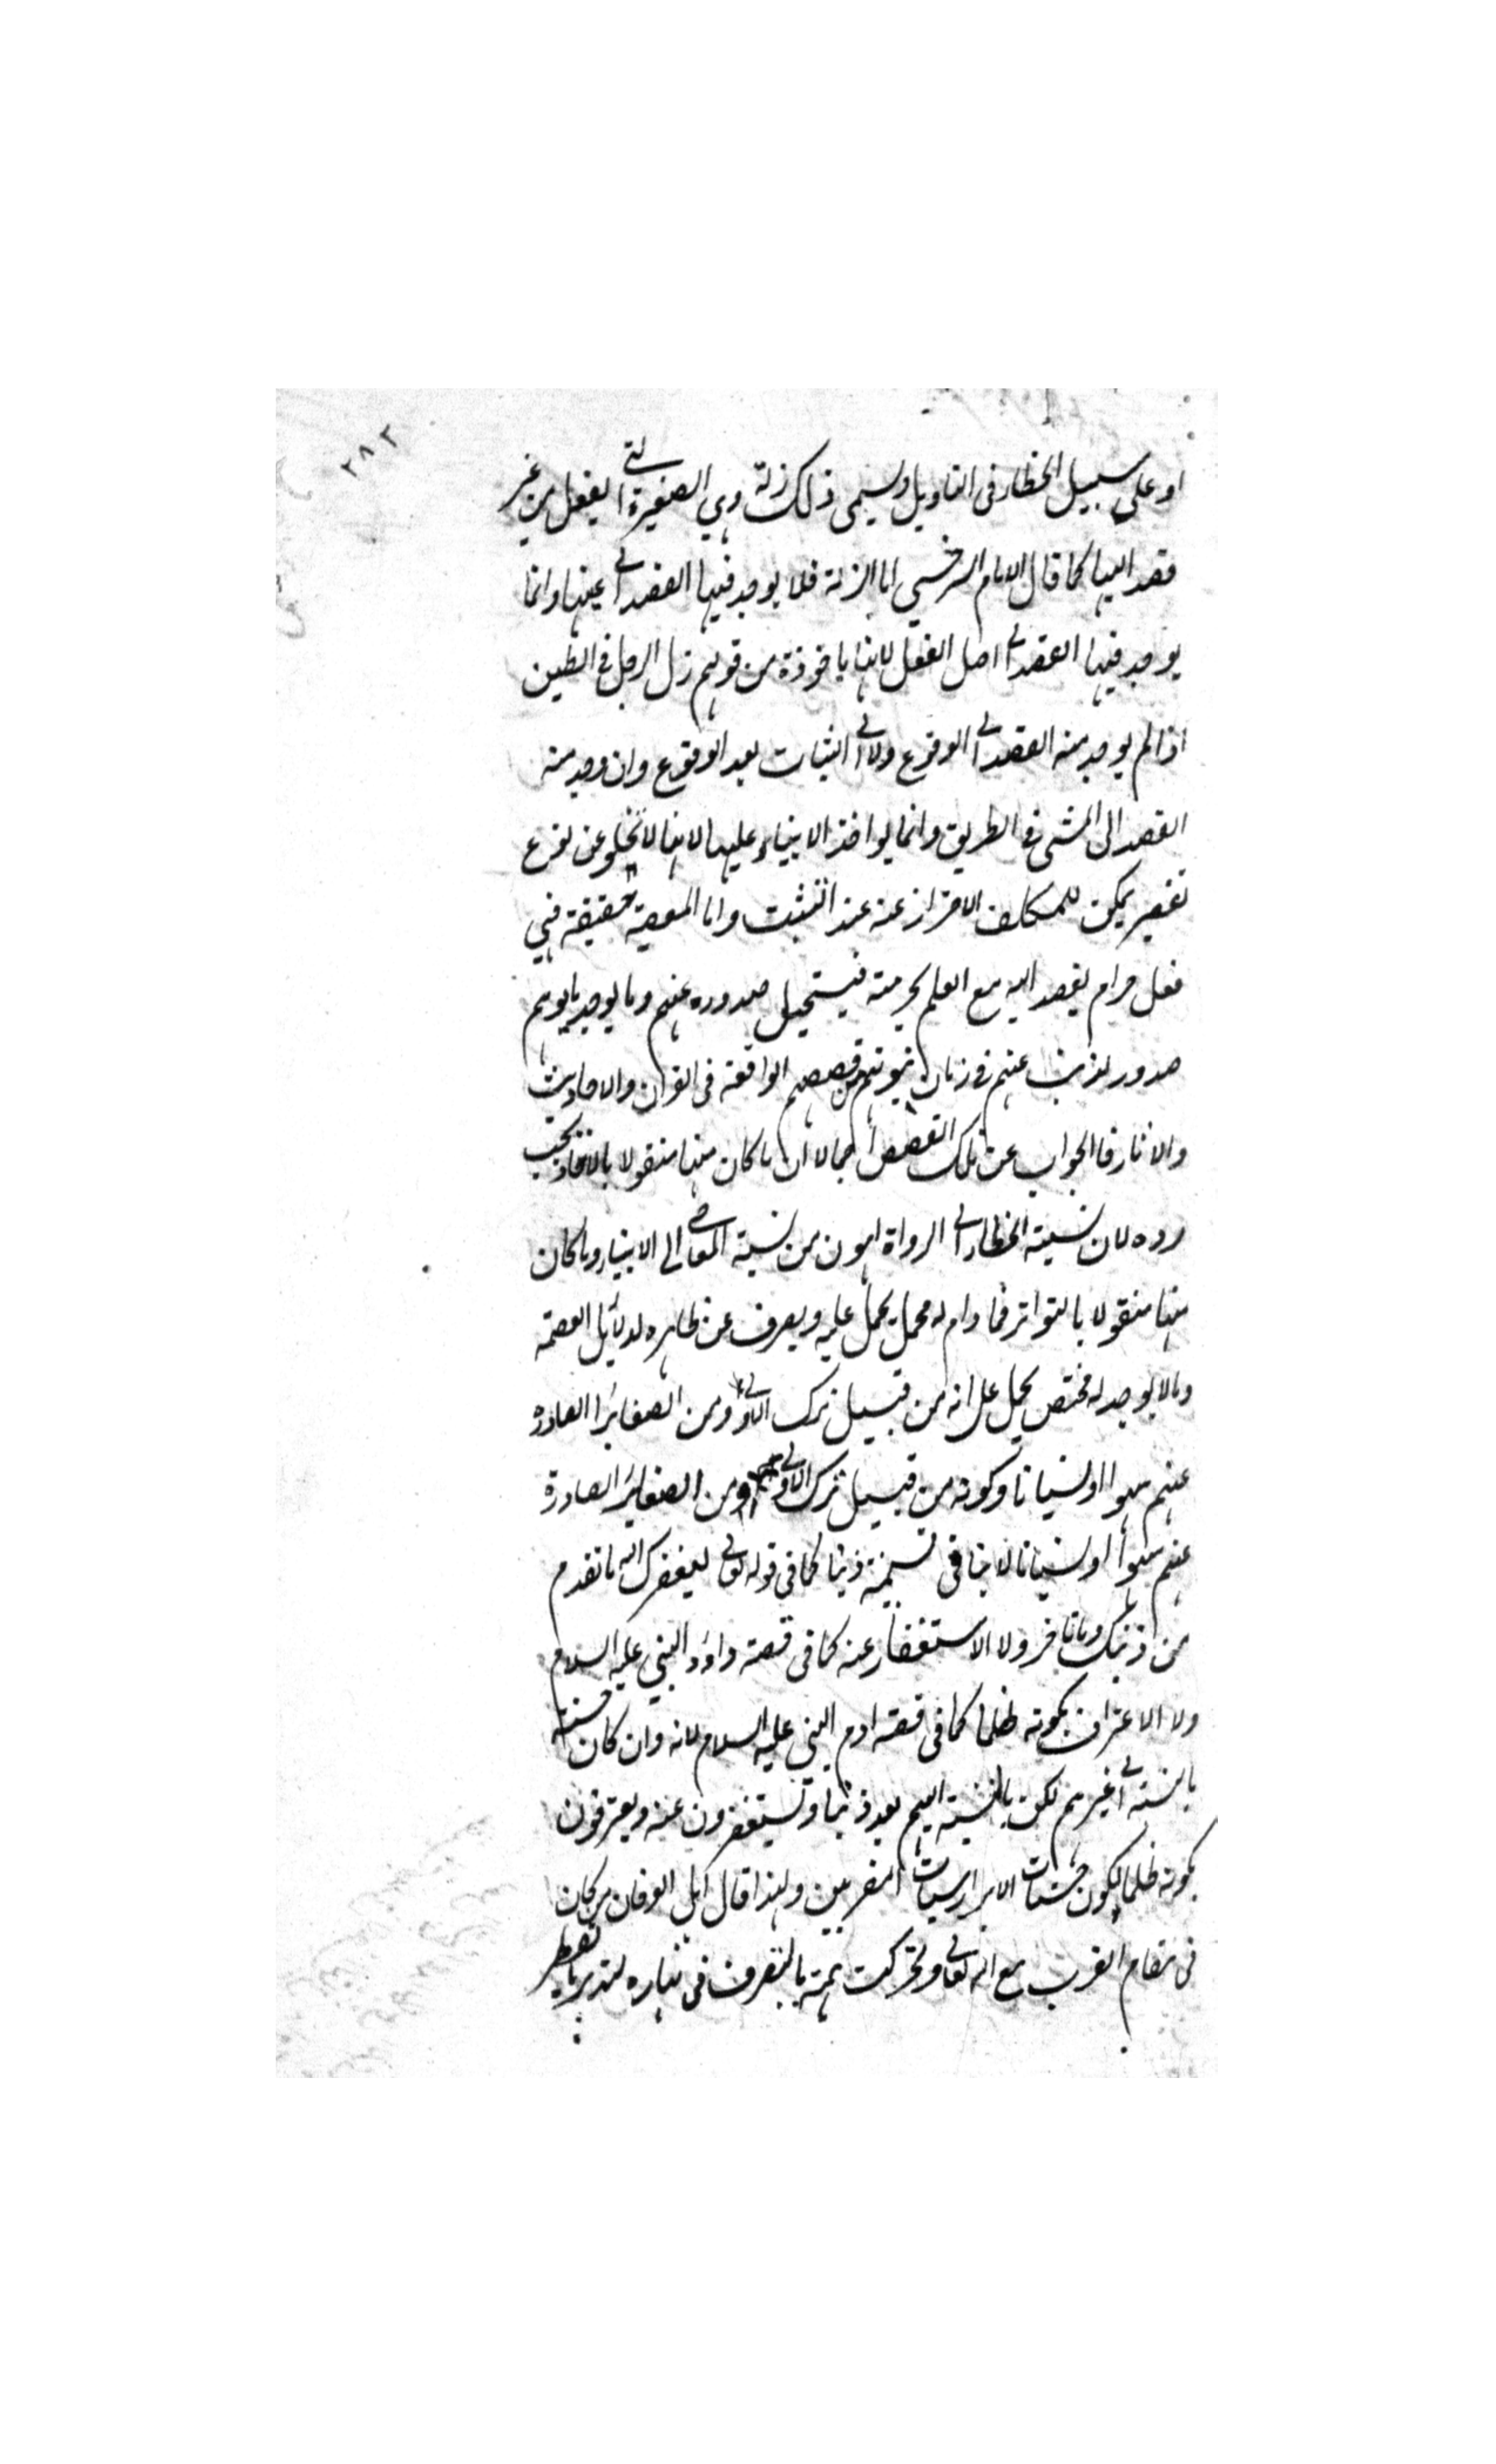 ٢٨٢
او على سبيل الخطاء فى التاويل ويسمى ذلك زلة وهي الصغيرة التي يفعل من غير
قصد اليها كما قال الامام السرخسي اما الزلة فلا يوجد فيها القصد الى عينها وانما
يوجد فيها القصد الى اصل الفعل لانها ماخوذة من قولهم زل الرجل فى الطين
اذا لم يوجد منه القصد الى الوقوع ولا الى الثبات بعد الوقوع وان وجد منه
القصد الى المشى فى الطريق وانما يواخذ الانبياء عليها لانها لا تخلو عن نوع
تقصير يمكن للمكلف الاحتراز عنه عند التثبت واما المعصية حقيقة فهي
فعل حرام يقصد اليه مع العلم بحرمته فيستحيل صدوره عنهم وما يوجد مايوهم
صدور الذنب عنهم فى زمان نبوتهم من قصصهم الواقعة فى القران والاحاديث
والاثار فالجواب عن تلك القصص اجمالا ان ما كان منها منقولا بالاحاد يجب
رده لان نسبة الخطاء الى الرواة اهون من نسبة المعاصي الى الانبياء وما كان
منها منقولا بالتواتر فما دام له محمل يحمل عليه ويصرف عن ظاهره لدلائل العصمة
وما لا يوجد له مخلص يحمل على انه من قبيل ترك الاولى او من الصغاير الصادرة
عنهم سهوا او نسيانا وكونه من قبيل ترك الاولى او من الصغاير الصادرة
عنهم سهوا او نسيانا لا ينافى تسميته ذنبا كما فى قوله تعالى ليغفر لك الله ما تقدم
من ذنبك وما تاخر ولا الاستغفار عنه كما فى قصة داود النبي عليه السلام
ولا الاعتراف بكونه ظلما كما فى قصة ادم النبي عليه السلام لانه وان كان حسنة
بالنسبة الى غيرهم لكن بالنسبة اليهم يعد ذنبا ويستغفرون عنه ويعترفون
بكونه ظلما لكون حسنات الابرار سيات المقربين ولهذا قال اهل العرفان من كان
فى مقام القرب مع الله تعالى وتحركت همته بالتصرف فى نهاره لتدبير ما يفطر